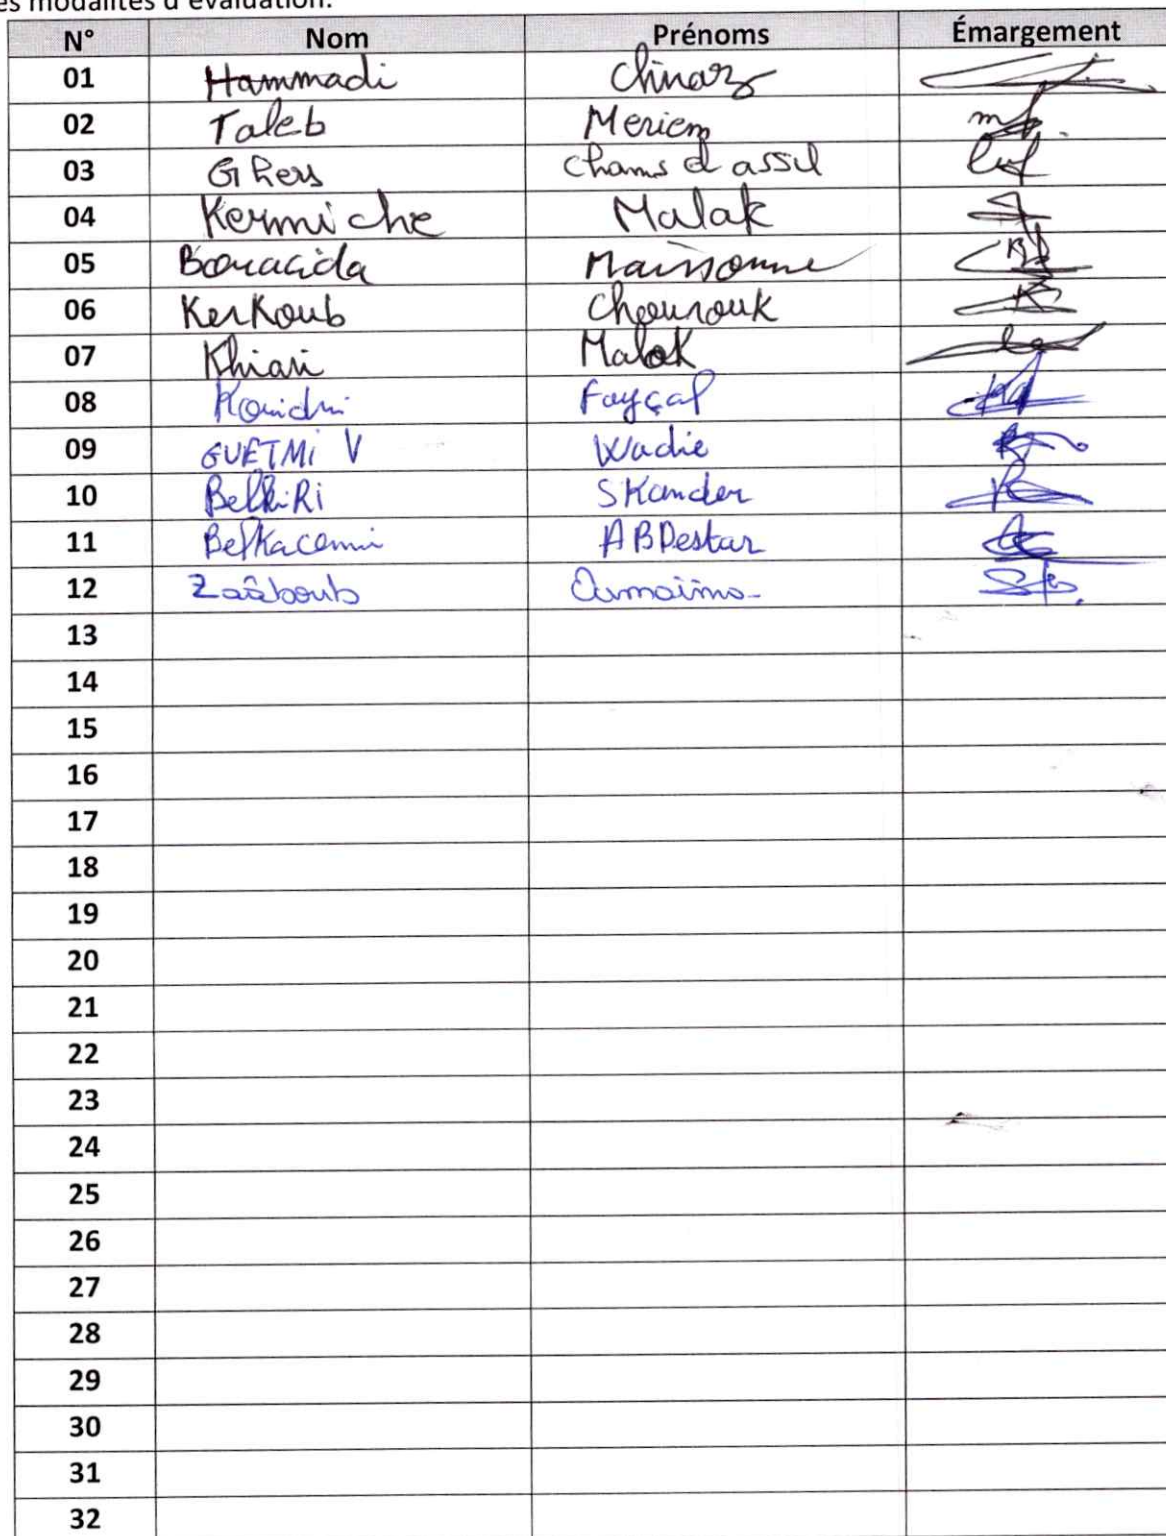 es modalités d'évaluation.
N° Nom Prénoms Émargement
01 Hammadi Chinaz
02 Taleb Meriem
03 Ghers Chams d assil
04 Kermiche Malak
05 Bouacida Maissonne
06 Kerkoub Chourouk
07 Khiari Malak
08 Kouidri Fayçal
09 GUETMi V Wadie
10 BelkiRi SKander
11 Belkacemi ABDestar
12 Zaâboub Oumaïma
13
14
15
16
17
18
19
20
21
22
23
24
25
26
27
28
29
30
31
32